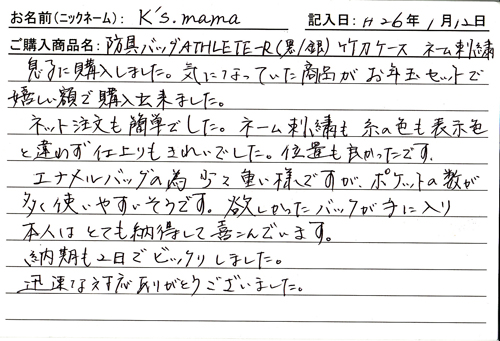 お名前(ニックネーム): K's.mama 記入日: H26年1月12日
ご購入商品名: 防具バッグATHLETE-R(黒/銀) 竹刀ケース ネーム刺繍
息子に購入しました。気になっていた商品がお年玉セットで
嬉しい額で購入出来ました。
ネット注文も簡単でした。ネーム刺繍も糸の色も表示色
と違わず仕上りもきれいでした。位置も良かったです.
エナメルバッグの為少々重い様ですが、ポケットの数が
多く使いやすいそうです。欲しかったバックが手に入り
本人はとても納得して喜こんでいます。
納期も2日でビックリしました。
迅速な対応ありがとうございました。